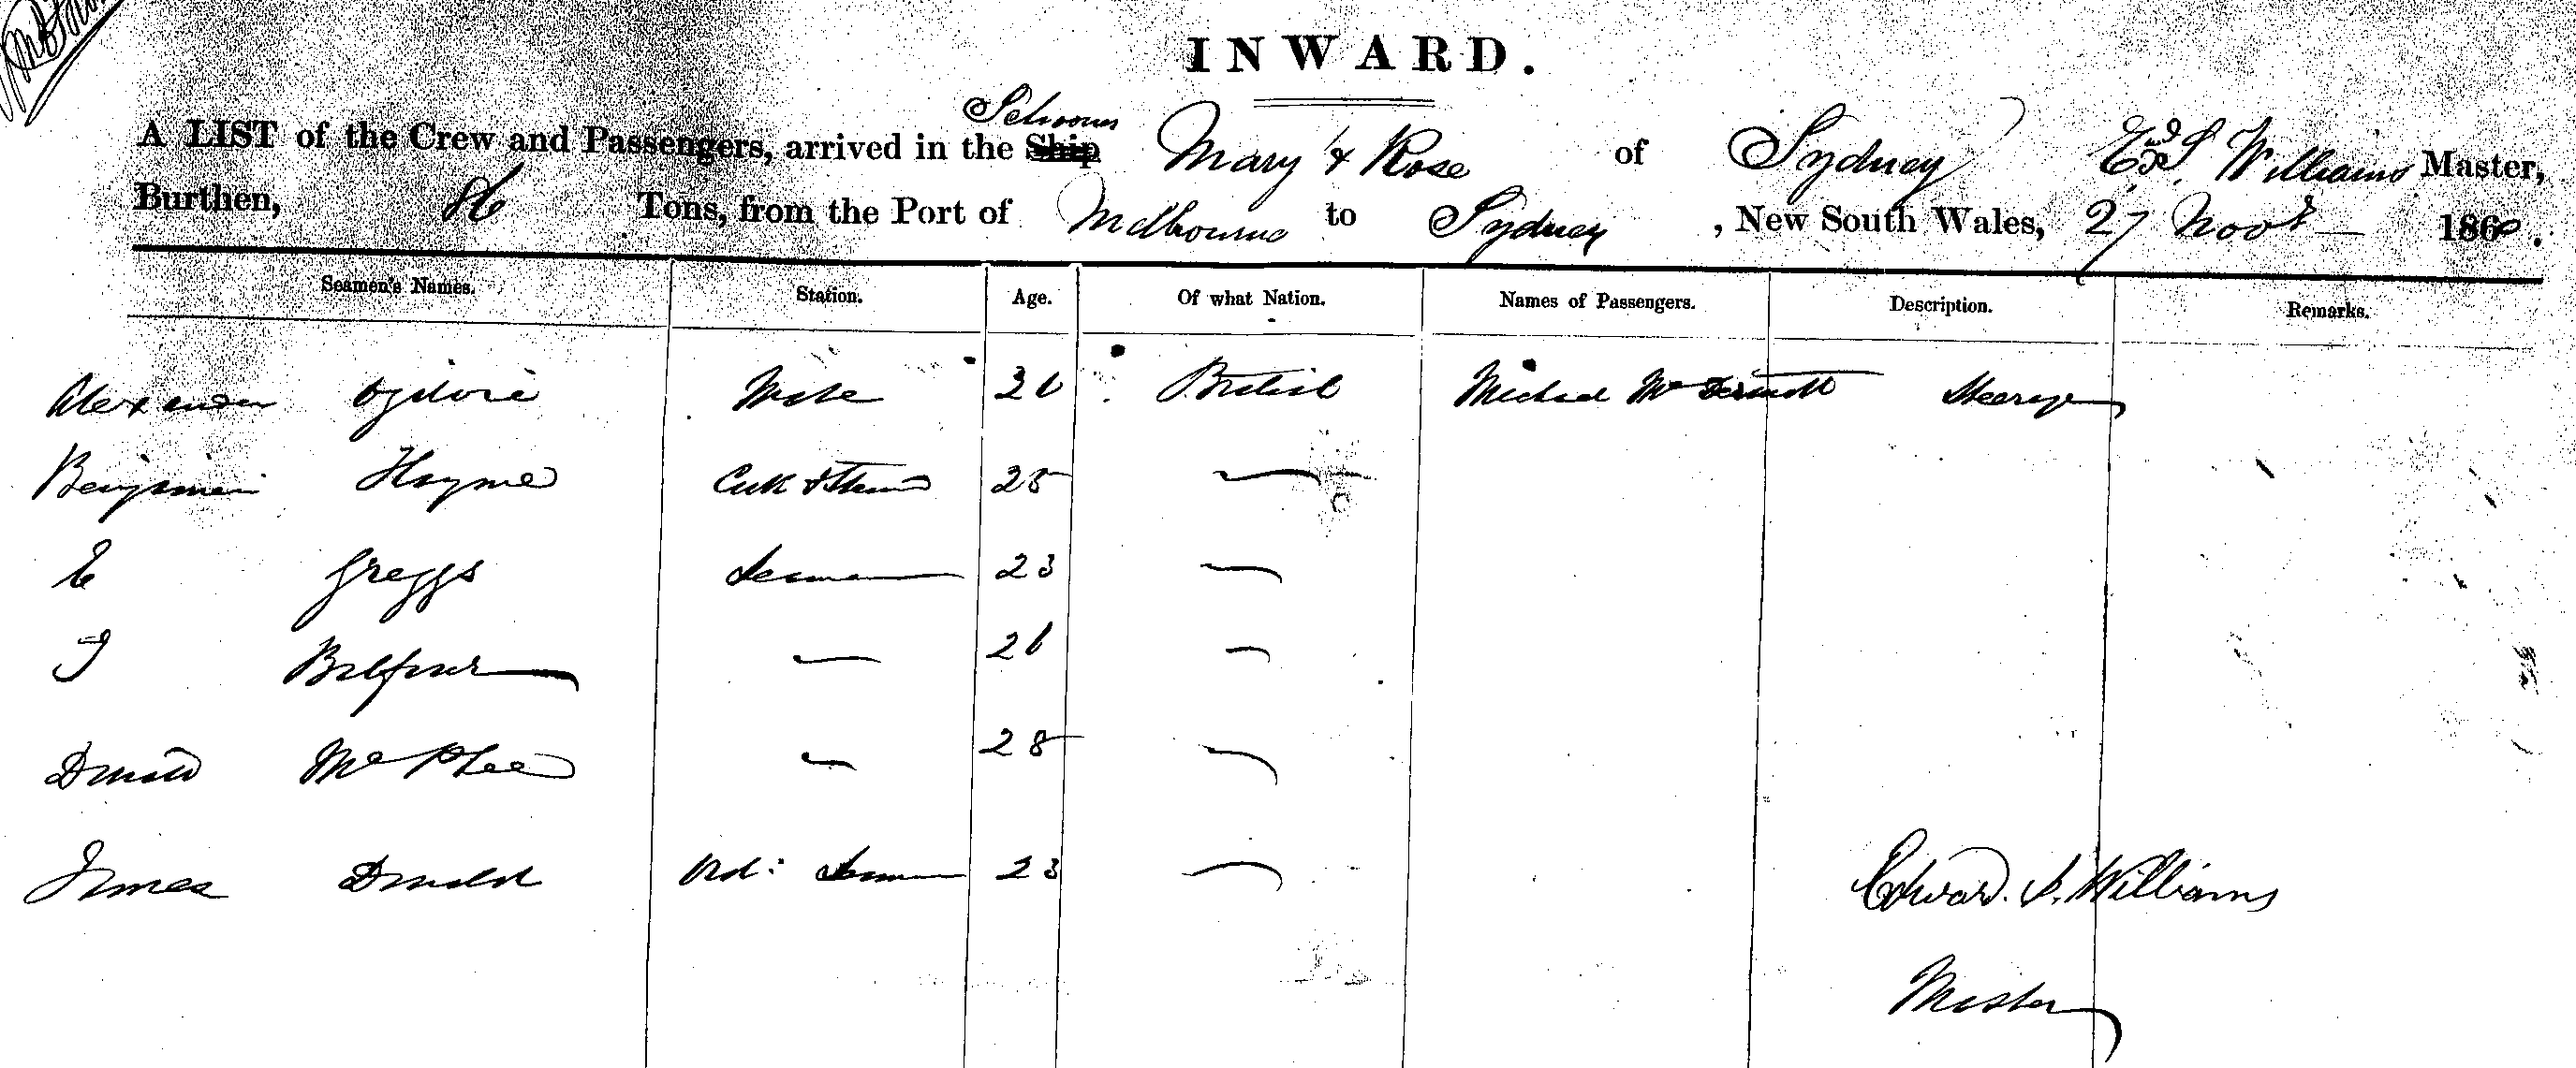 INWARD.
Schooner
A LIST of the Crew and Passengers, arrived in the Ship Mary & Rose of Sydney Ed. S. Williams Master,
Burthen, 86 Tons, from the Port of Melbourne to Sydney, New South Wales, 27 Novr 1860.
Seamen's Names. Station. Age. Of what Nation. Names of Passengers. Description. Remarks.
Alexander Ogilvie Mate 26 British Michael McDermott Steerage
Benjamin Hayme Cook & Steward 25 —
E Greggs Seaman 23 —
J Balfour — 26 —
Donald McPhee — 25 —
James Donald Ord: Seaman 23 — Edward. S. Williams
Master